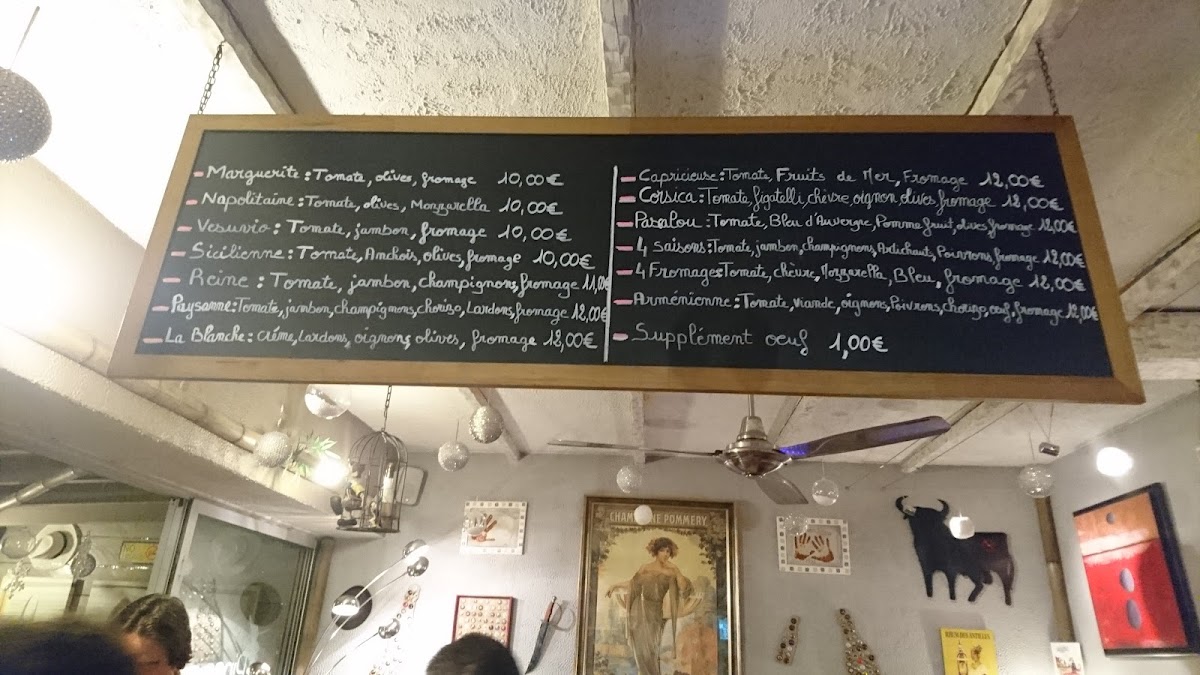 - Marguerite : Tomate, olives, fromage 10,00€
- Napolitaine : Tomate, olives, Mozzarella 10,00€
- Vesuvio : Tomate, jambon, fromage 10,00€
- Sicilienne : Tomate, Anchois, olives, fromage 10,00€
- Reine : Tomate, jambon, champignons, fromage 11,00€
- Paysanne : Tomate, jambon, champignons, chorizo, Lardons, fromage 12,00€
- La Blanche : crème, Lardons, oignons, olives, fromage 12,00€
- Capricieuse : Tomate, Fruits de Mer, Fromage 12,00€
- Corsica : Tomate, figatelli, chèvre, oignon, olives, fromage 12,00€
- Pasalou : Tomate, Bleu d'Auvergne, Pomme fruit, olives, fromage 12,00€
- 4 saisons : Tomate, jambon, champignons, Artichauts, Poivrons, fromage 12,00€
- 4 Fromages : Tomate, chèvre, Mozzarella, Bleu, fromage 12,00€
- Arménienne : Tomate, viande, oignons, Poivrons, chorizo, oeuf, fromage 12,00€
- Supplément oeuf 1,00€
CHAMPAGNE POMMERY
RHUM DES ANTILLES